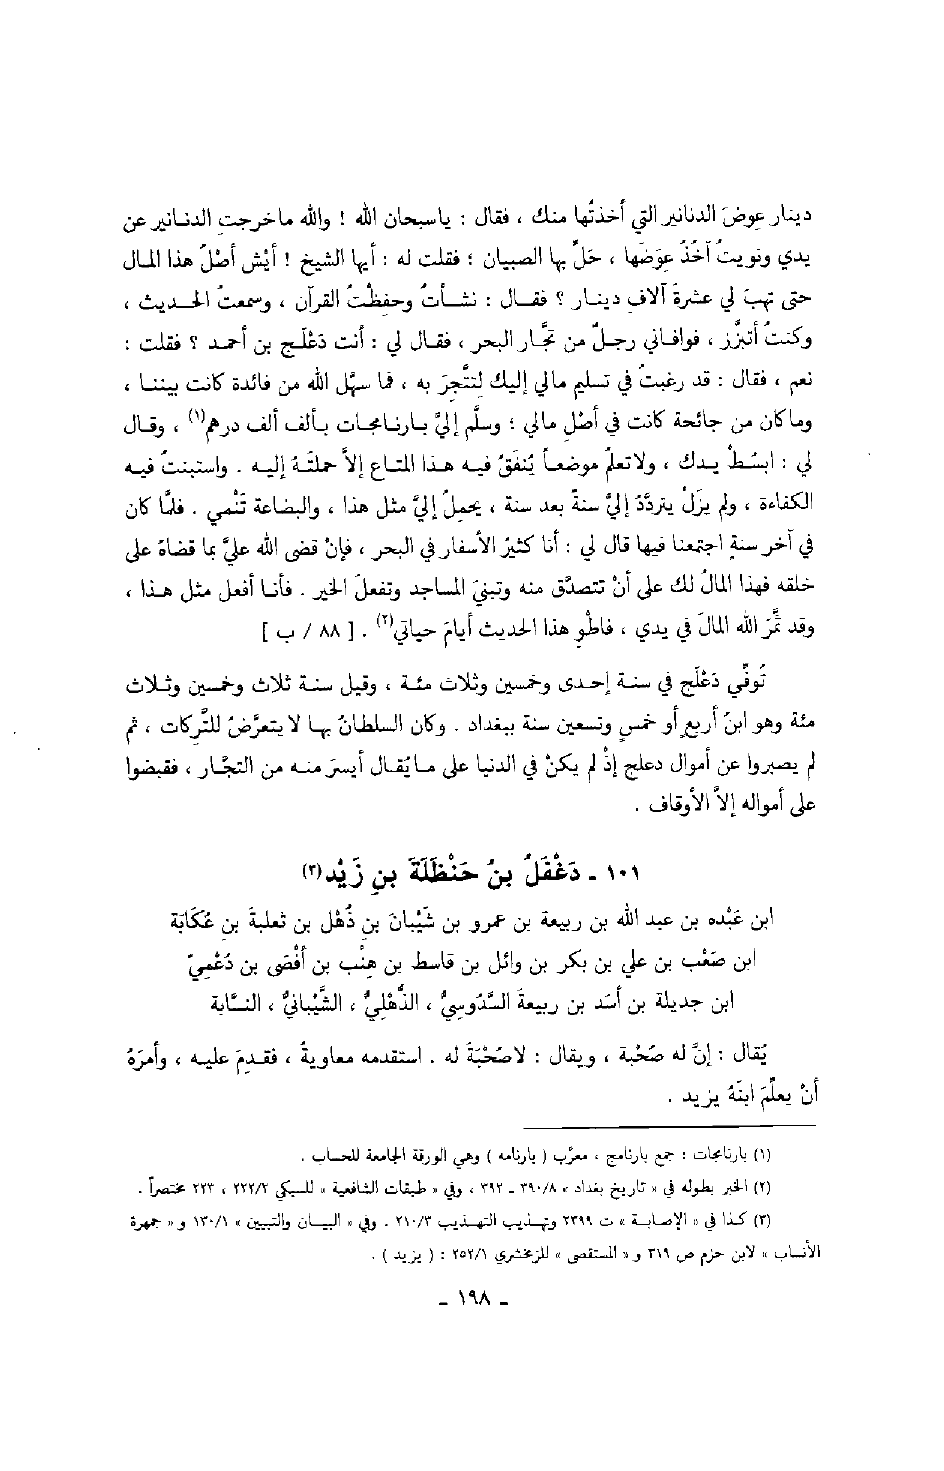 دينار عِوضَ الدنانير التي أخذتُها منك ، فقال : ياسبحان الله ! والله ماخرجتِ الدنانير عن
يدي ونويتُ آخُذُ عِوَضَها ، حَلِّ بها الصبيان ؛ فقلت له : أيها الشيخ ! أيْش أصْلُ هذا المال
حتى تهبَ لي عشرةَ آلافِ دينار ؟ فقال : نشأتُ وحفِظْتُ القرآن ، وسمعتُ الحديث ،
وكنتُ أتبزَّز ، فوافاني رجلٌ من تجَّار البحر ، فقال لي : أنت دَعْلَج بن أحمد ؟ فقلت :
نعم ، فقال : قد رغبتُ في تسليم مالي إليك لتتَّجِرَ به ، فما سهَّل الله من فائدة كانت بيننا ،
وماكان من جائحة كانت في أصْلِ مالي ؛ وسلَّم إليَّ بارنامجات بألف ألف درهم(١) ، وقال
لي : ابسُطْ يدك ، ولاتعلمْ موضعاً يُنفَقُ فيه هذا المتاع إلاَّ حملتَهُ إليه . واستبنتُ فيه
الكفاءة ، ولم يزَلْ يتردَّدُ إليَّ سنةً بعد سنة ، يحمِلُ إليَّ مثل هذا ، والبضاعة تَنْمي . فلمَّا كان
في آخر سنةٍ اجتمعنا فيها قال لي : أنا كثيرُ الأسفار في البحر ، فإنْ قضى الله عليَّ بما قضاهُ على
خلقه فهذا المالُ لك على أنْ تتصدَّق منه وتبنيَ المساجد وتفعلَ الخير . فأنا أفعل مثل هذا ،
وقد ثمَّرَ الله المالَ في يدي ، فاطْوِ هذا الحديث أيامَ حياتي(٢) . [ ٨٨ / ب ]
تُوفّي دَعْلَج في سنة إحدى وخمسين وثلاث مئة ، وقيل سنة ثلاث وخمسين وثلاث
مئة وهو ابنُ أربعٍ أو خمسٍ وتسعين سنة ببغداد . وكان السلطانُ بها لا يتعرَّضُ للتَّرِكات ، ثم
لم يصبروا عن أموال دعلج إذْ لم يكنْ في الدنيا على مايُقال أيسرَ منه من التجَّار ، فقبضوا
على أمواله إلاَّ الأوقاف .
١٠١ - دَغْفَلُ بنُ حَنْظَلَةَ بنِ زَيْد(٣)
ابن عَبْده بن عبد الله بن ربيعة بن عمرو بن شَيْبانَ بنِ ذُهْل بن ثعلبةَ بنِ عُكَابَة
ابن صَعْب بن علي بن بكر بن وائل بن قاسط بن هِنْب بن أفْصَى بن دُعْمِيّ
ابن جديلة بن أسَد بن ربيعةَ السَّدُوسيُّ ، الذُّهْليُّ ، الشَّيْبانيُّ ، النسَّابة
يُقال : إنَّ له صُحْبة ، ويقال : لاصُحْبَةَ له . استقدمه معاويةُ ، فقدِمَ عليه ، وأمرَهُ
أنْ يعلِّمَ ابنَهُ يزيد .
(١) بارنامجات : جمع بارنامج ، معرَّب ( بارنامه ) وهي الورقة الجامعة للحساب .
(٢) الخبر بطوله في « تاريخ بغداد » ٣٩٠/٨ - ٣٩٢ ، وفي « طبقات الشافعية » للسبكي ٢٢٢/٢ ، ٢٢٣ مختصراً .
(٣) كذا في « الإصابة » ت ٢٣٩٩ وتهذيب التهذيب ٢١٠/٣ . وفي « البيان والتبيين » ١٣٠/١ و « جمهرة
الأنساب » لابن حزم ص ٣١٩ و « المستقصى » للزمخشري ٢٥٢/١ : ( يزيد ) .
- ١٩٨ -